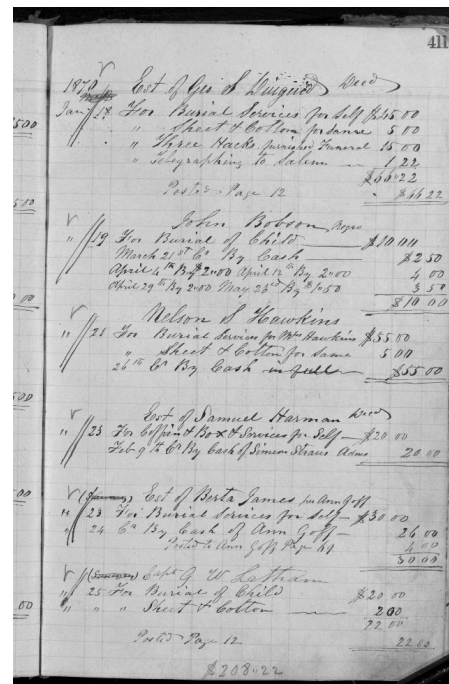 411
1870 Est of Geo S Diuguid Decd
Jany 18 For Burial Services for Self $45 00
" Sheet & Cotton for Same 5 00
" Three Hacks furnished Funeral 15 00
" Telegraphing to Salem 1 22
$66 22
Posted Page 12 $66 22
John Bobson Negro
" 19 For Burial of Child $10.00
March 21st Cr By Cash $2 50
April 4th By $2.00 April 12th By 2.00 4 00
April 29th By 2.00 May 23d By $1.50 3 50
$10 00
Nelson S Hawkins
" 21 For Burial Services for Mrs Hawkins $55.00
" Sheet & Cotton for Same 5 00
26th Cr By Cash in full $55.00
Est of Samuel Harman Decd
" 23 For Coffin & Box & Services for Self $20.00
Feb 9th Cr By Cash of Simeon Straus Admr 20.00
Est of Berta James per Ann Goff
" 23 For Burial Services for Self $30 00
" 24 Cr By Cash of Ann Goff 26 00
Posted to Ann Goff Page 4 00
30 00
Capt G W Latham
" 25 For Burial of Child $20 00
" " " Sheet & Cotton 2 00
22 00
Posted Page 12 22 00
$208.22